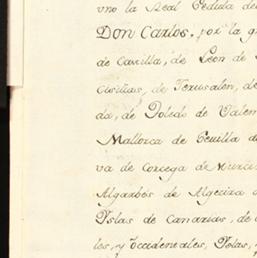 uno la Real Cedula de
Don Carlos, por la g
de Castilla, de Leon de
Cicilias, de Jerusalen, de
da, de Toledo de Valen
Mallorca de Sevilla d
va de Corcega de Murci
Algarbes de Algecira d
Yslas de Canarias, de
les, y Occidentales, Yslas, y